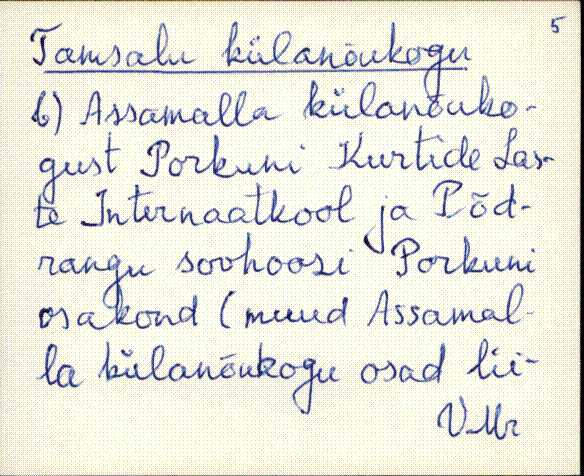 5
Tamsalu külanõukogu
b) Assamalla külanõuko-
gust Porkuni Kurtide Las-
te Internaatkool ja Põd-
rangu sovhoosi Porkuni
osakond (muud Assamal-
la külanõukogu osad lii-